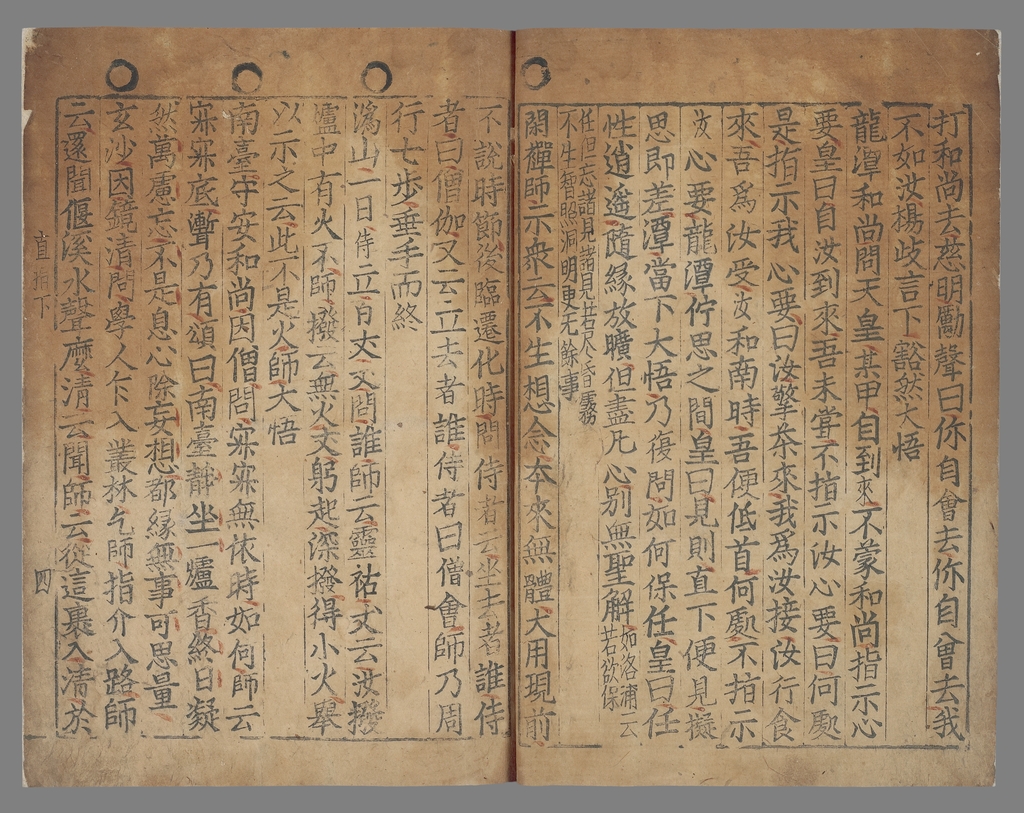 打和尚去慈明勵聲曰你自會去你自會去我
不如汝楊歧言下豁然大悟
龍潭和尚問天皇某甲自到來不蒙和尚指示心
要皇曰自汝到來吾未甞不指示汝心要曰何處
是指示我心要曰汝擎茶來我爲汝接汝行食
來吾爲汝受汝和南時吾便低首何處不指示
汝心要龍潭佇思之間皇曰見則直下便見擬
思即差潭當下大悟乃復問如何保任皇曰任
性逍遙隨緣放曠但盡凡心別無聖解如洛浦云若欲保
任但忘諸見諸見若尽昏霧不生智照洞明更无餘事
閑禪師示衆云不生想念本來無體大用現前
不說時節後臨遷化時問侍者云坐去者誰侍
者曰僧伽又云立去者誰侍者曰僧會師乃周
行七步垂手而終
潙山一日侍立百丈丈問誰師云靈祐丈云汝撥
爐中有火不師撥云無火丈躬起深撥得小火擧
以示之云此不是火師大悟
南臺守安和尚因僧問寂寂無依時如何師云
寂寂底聻乃有頌曰南臺靜坐一爐香終日凝
然萬慮忘不是息心除妄想都緣無事可思量
玄沙因鏡清問學人乍入叢林乞師指介入路師
云還聞偃溪水聲麽清云聞師云從這裏入清於
直指下
四